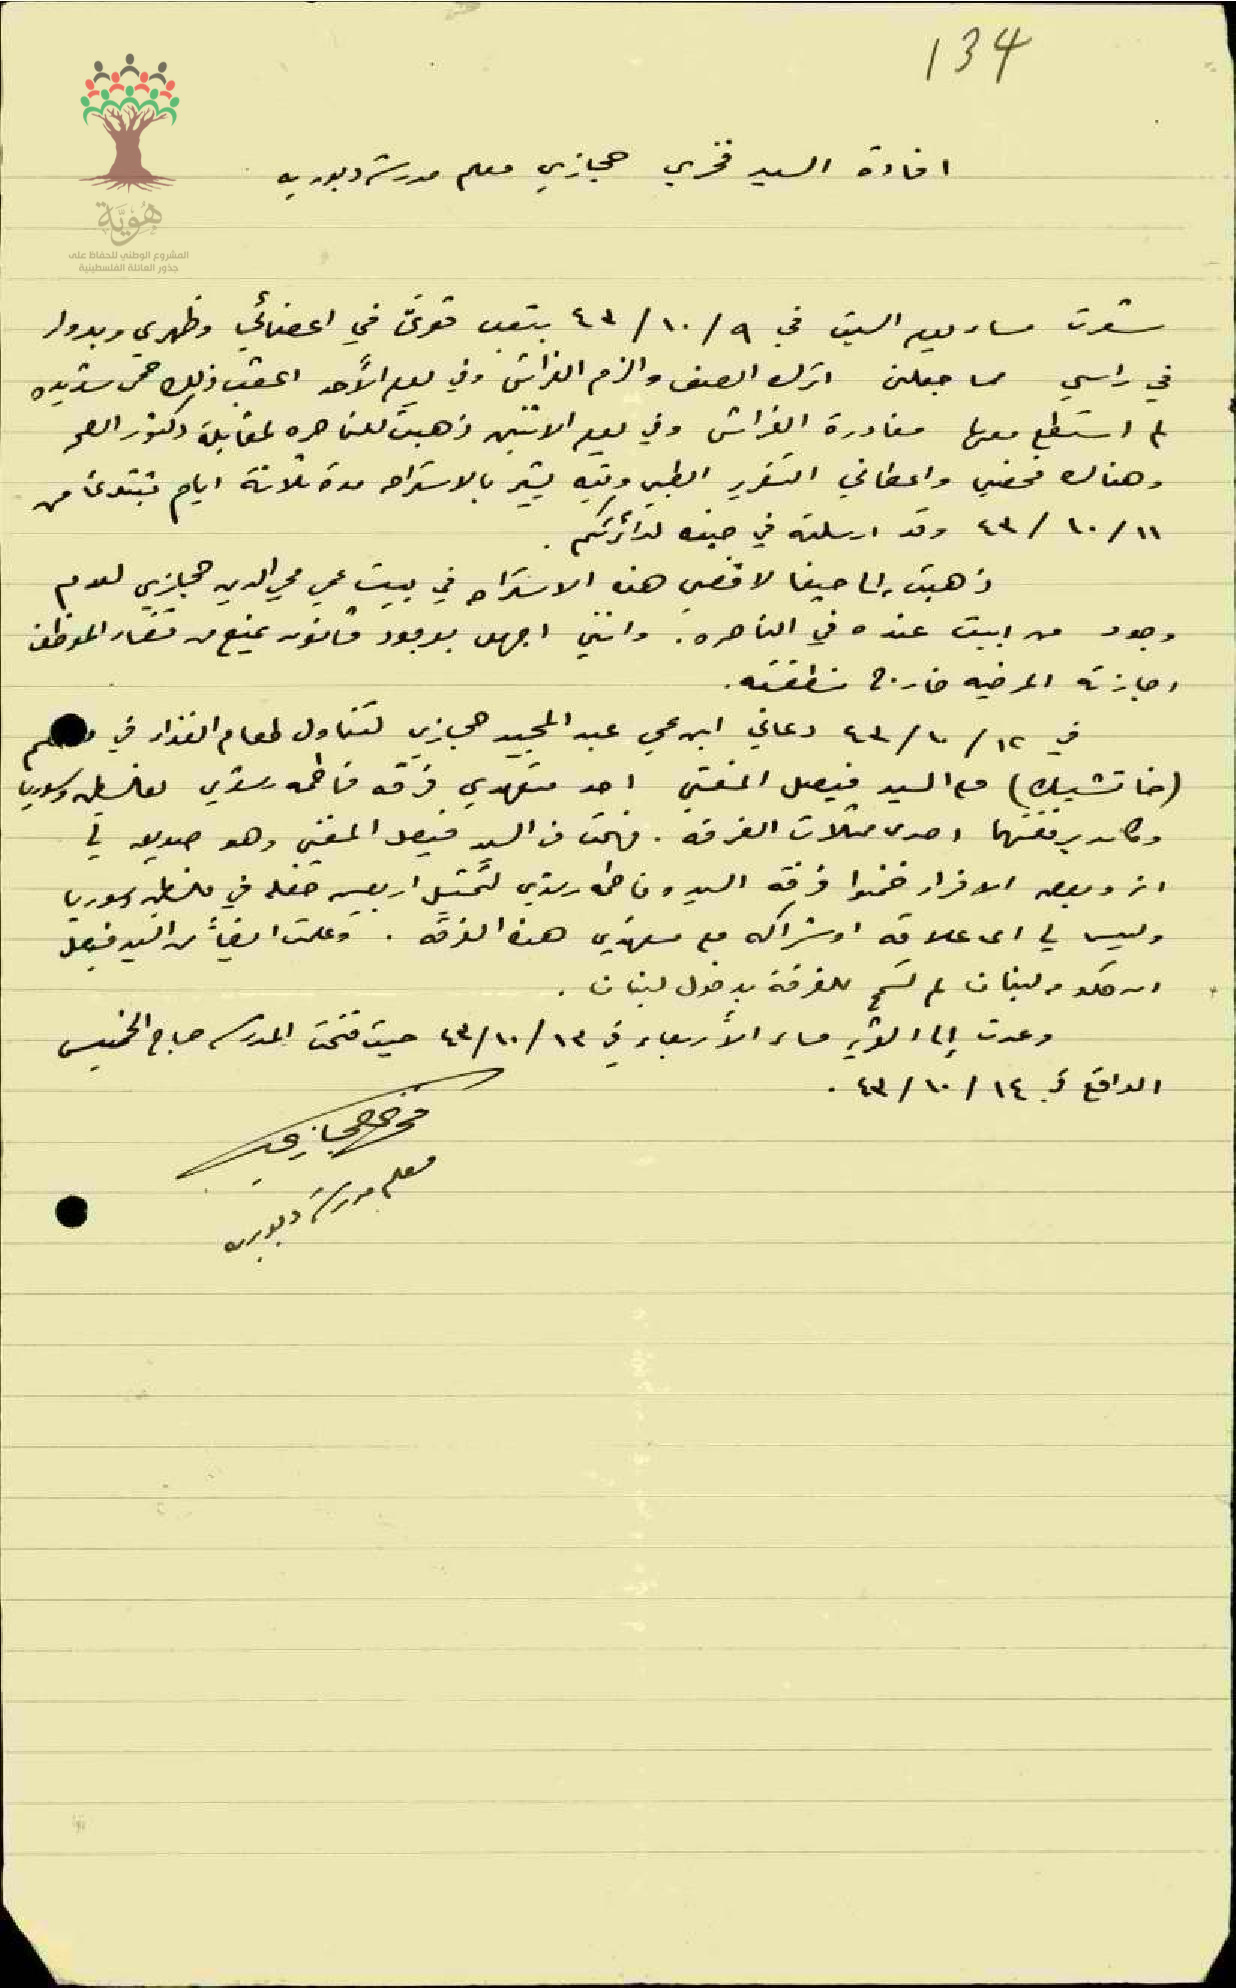 134
هُوِيَّة
المشروع الوطني للحفاظ على
جذور العائلة الفلسطينية
افادة السيد فخري حجازي معلم مدرسة دبوريه
شعرت مساء يوم السبت في ٩/١٠/٤٣ بتعب قوي في اعضائي وظهري وبدوار
في راسي مما جعلني اترك الصف والزم الفراش وفي يوم الأحد اعقب ذلك حمى شديده
لم استطع معها مغادرة الفراش وفي يوم الاثنين ذهبت للناصره لمقابلة دكتور الصحه
وهناك فحصني واعطاني التقرير الطبي وفيه يشير بالاستراحه مدة ثلاثة ايام تبتدئ من
١١/١٠/٤٣ وقد ارسلته في حينه لدائرتكم .
ذهبت الى حيفا لاقضي هذه الاستراحه في بيت عمي محي الدين حجازي لعدم
وجود من ابيت عنده في الناصره . وانني اجهل بوجود قانون يمنع من قضاء الموظف
اجازته المرضيه خارج منطقته .
في ١٢/١٠/٤٣ دعاني ابن عمي عبد المجيد حجازي لتناول طعام الغذاء في
(خاتشيك) مع السيد فيصل المفتي احد متعهدي فرقه فاطمه رشدي لفلسطين وسوريا
وكان يرفقهما احدى ممثلات الفرقه . فهمت من السيد فيصل المفتي وهو صديق لي
انه وبعض الافراد ضمنوا فرقة السيده فاطمه رشدي لتمثيل اربعين حفله في فلسطين وسوريا
وليس لي اى علاقه او شراكه مع متعهدي هذه الفرقه . وعلمت ايضاً من السيد فيصل
ان حكومه لبنان لم تسمح للفرقة بدخول لبنان .
وعدت إلى القريه مساء الأربعاء في ١٣/١٠/٤٣ حيث فتحت المدرسه صباح الخميس
الواقع في ١٤/١٠/٤٣ .
فخري حجازي
معلم مدرسة دبوريه